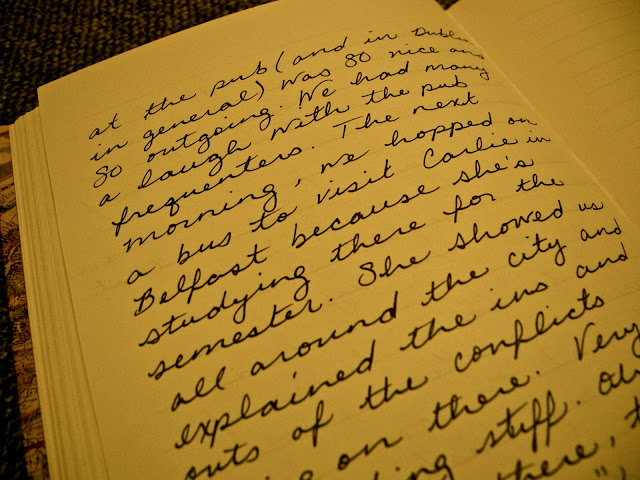 at the pub (and in Dublin
in general) was so nice and
so outgoing. We had many
a laugh with the pub
frequenters. The next
morning, we hopped on
a bus to visit Carlie in
Belfast because she's
studying there for the
semester. She showed us
all around the city and
explained the ins and
outs of the conflicts
on there. Very
stuff.
there,